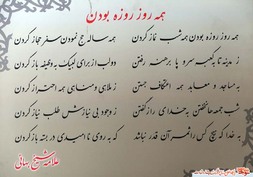 همه روز روزه بودن
همه روز روزه بودن همه شب نماز کردن
همه ساله حج نمودن سفر حجاز کردن
ز مدینه تا به کعبه سر و پا برهنه رفتن
دو لب از برای لبیک به وظیفه باز کردن
به مساجد و معابد همه اعتکاف جستن
ز ملاهی و مناهی همه احتراز کردن
شب جمعه ها نخفتن به خدای راز گفتن
ز وجود بی نیازش طلب نیاز کردن
به خدا که هیچ کس را ثمر آن قدر نباشد
که به روی نا امیدی در بسته باز کردن
علامه شیخ بهائی